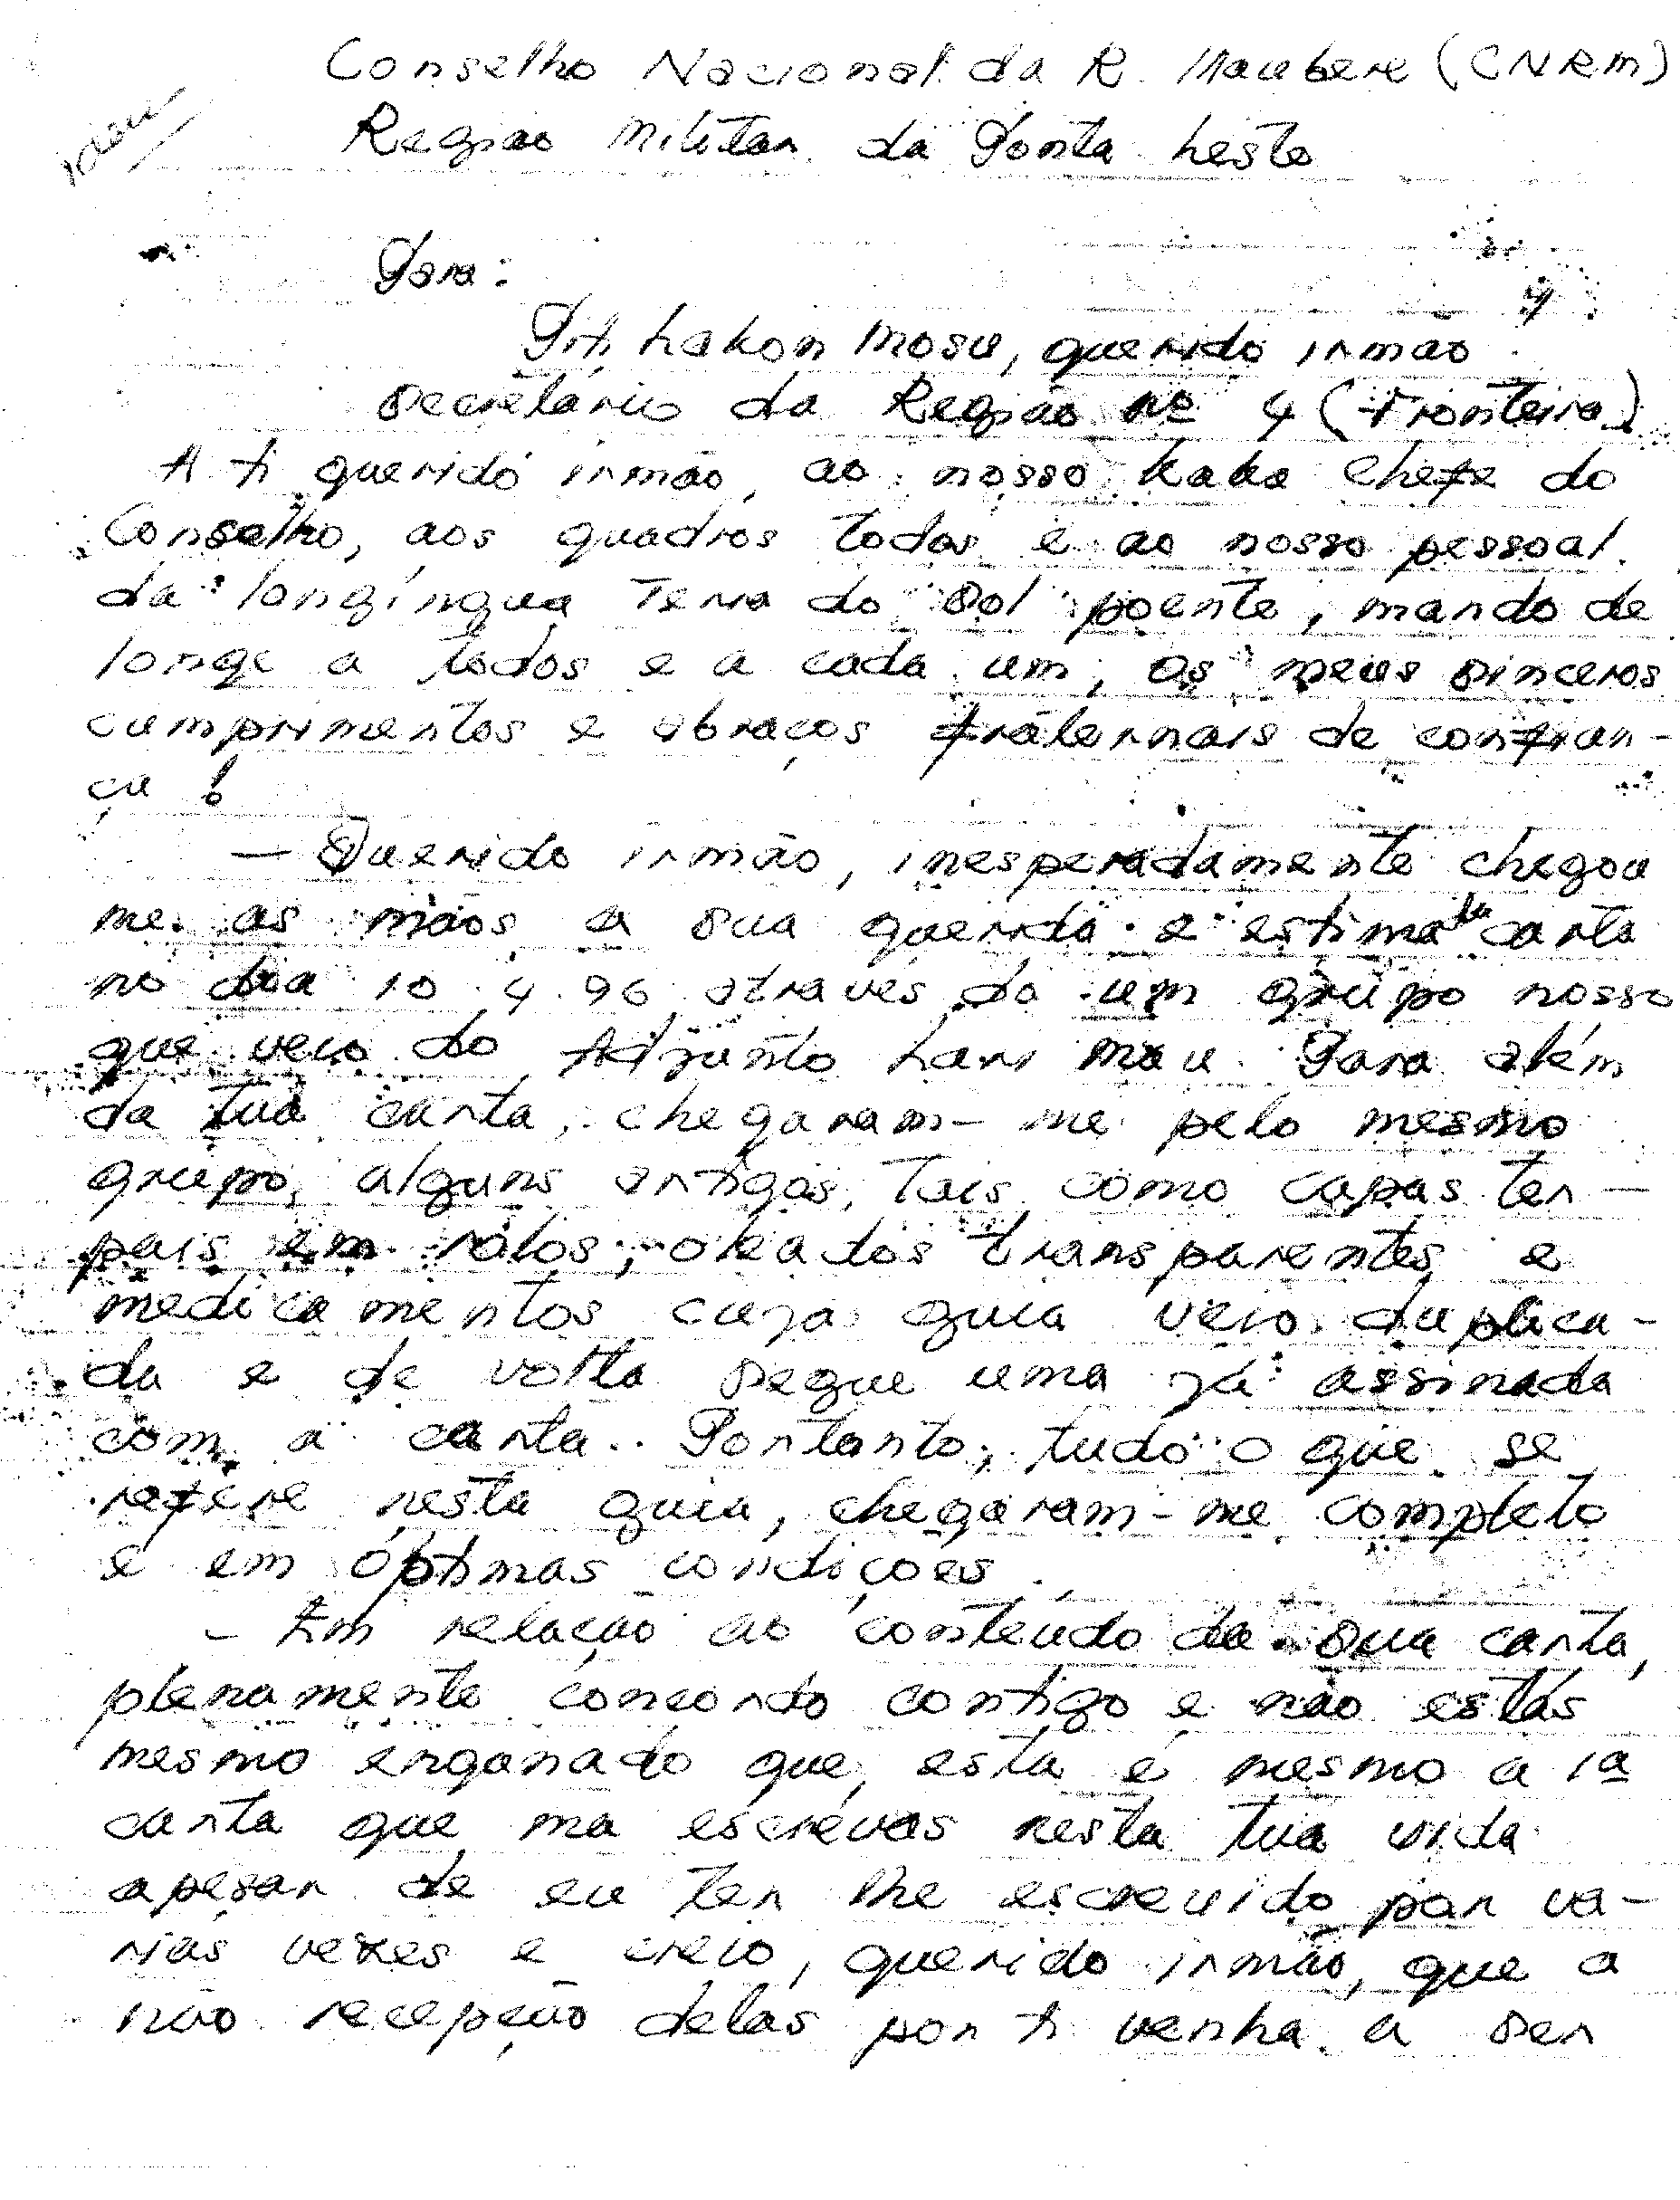 Conselho Nacional da R. Maubere (CNRM)
Região Militar da Ponta Leste
Para:
Piti Lakon Mosu, querido irmão
Secretário da Região nº 4 (Fronteira)
A ti querido irmão, ao nosso kaka chefe do
Conselho, aos quadros todos e ao nosso pessoal
da longínqua Terra do Sol poente, mando de
longe a todos e a cada um, os meus sinceros
cumprimentos e abraços fraternais de confian-
ça!
— Querido irmão, inesperadamente chegou
me as mãos a sua querida e estimada carta
no dia 10.4.96 através do um grupo nosso
que veio do Adjunto Lari Mau. Para além
da tua carta, chegaram-me pelo mesmo
grupo, alguns artigos, tais como capas ter-
pais em rolos; oleados transparentes e
medicamentos cuja guia veio duplica-
da e de volta segue uma já assinada
com a carta. Portanto, tudo o que se
refere nesta guia, chegaram-me completo
e em óptimas condições.
- Em relação ao conteúdo da sua carta,
plenamente concordo contigo e não estás
mesmo enganado que, esta é mesmo a 1ª
carta que ma escrevas nesta tua vida
apesar de eu ter lhe escrevido por vá-
rias vezes e creio, querido irmão, que a
não recepção delas por ti venha a ser